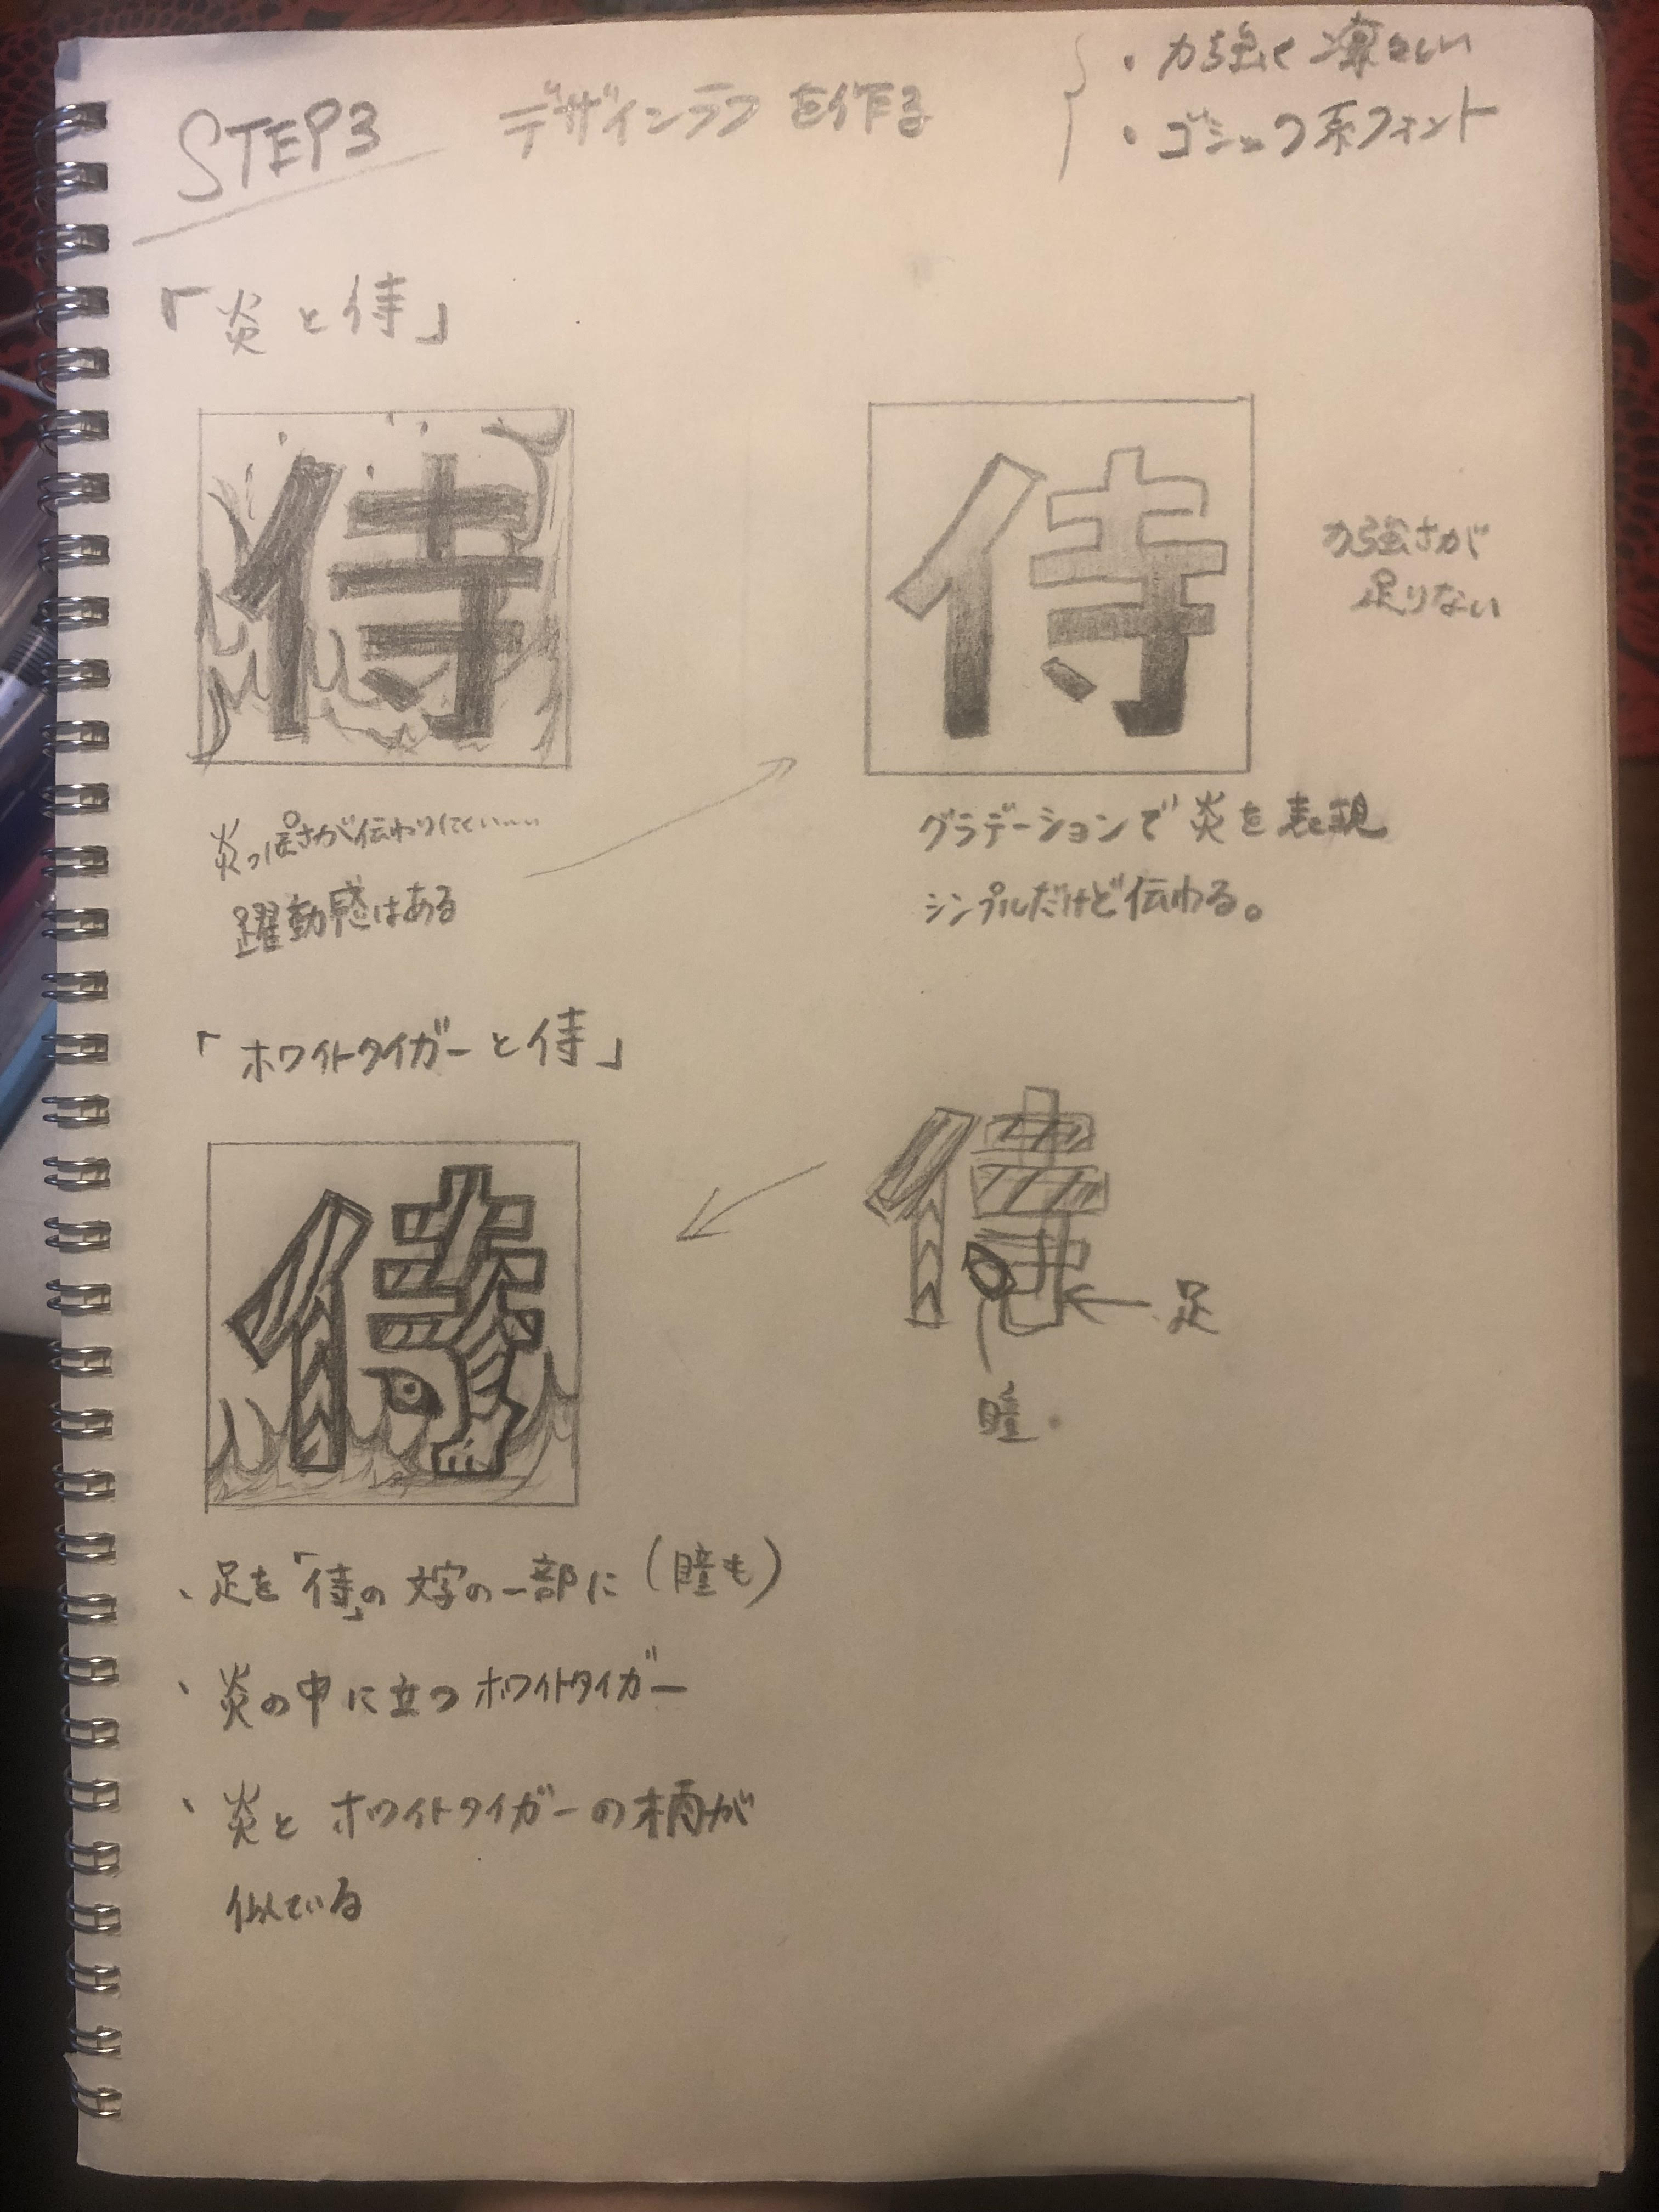 STEP3 デザインラフを作る
・力強く凛々しい
・ゴシック系フォント
「炎と侍」
侍
侍
力強さが
足りない
炎っぽさが伝わりにくい……
躍動感はある
グラデーションで炎を表現
シンプルだけど伝わる。
「ホワイトタイガーと侍」
侍
侍
足
瞳。
、足を「侍」の文字の一部に(瞳も)
、炎の中に立つホワイトタイガー
、炎とホワイトタイガーの柄が
似ている